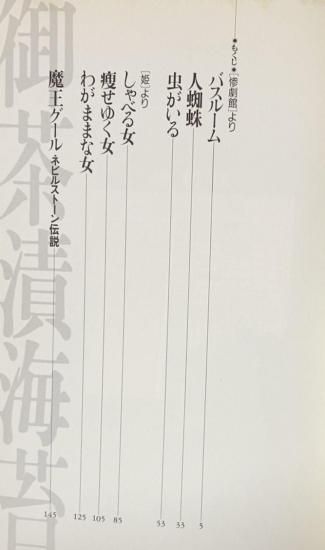 ●もくじ●[惨劇館]より
バスルーム 5
人蜘蛛 33
虫がいる 53
[姫]より
しゃべる女 85
痩せゆく女 105
わがままな女 125
魔王グール ネビルストーン伝説 145
御茶漬海苔